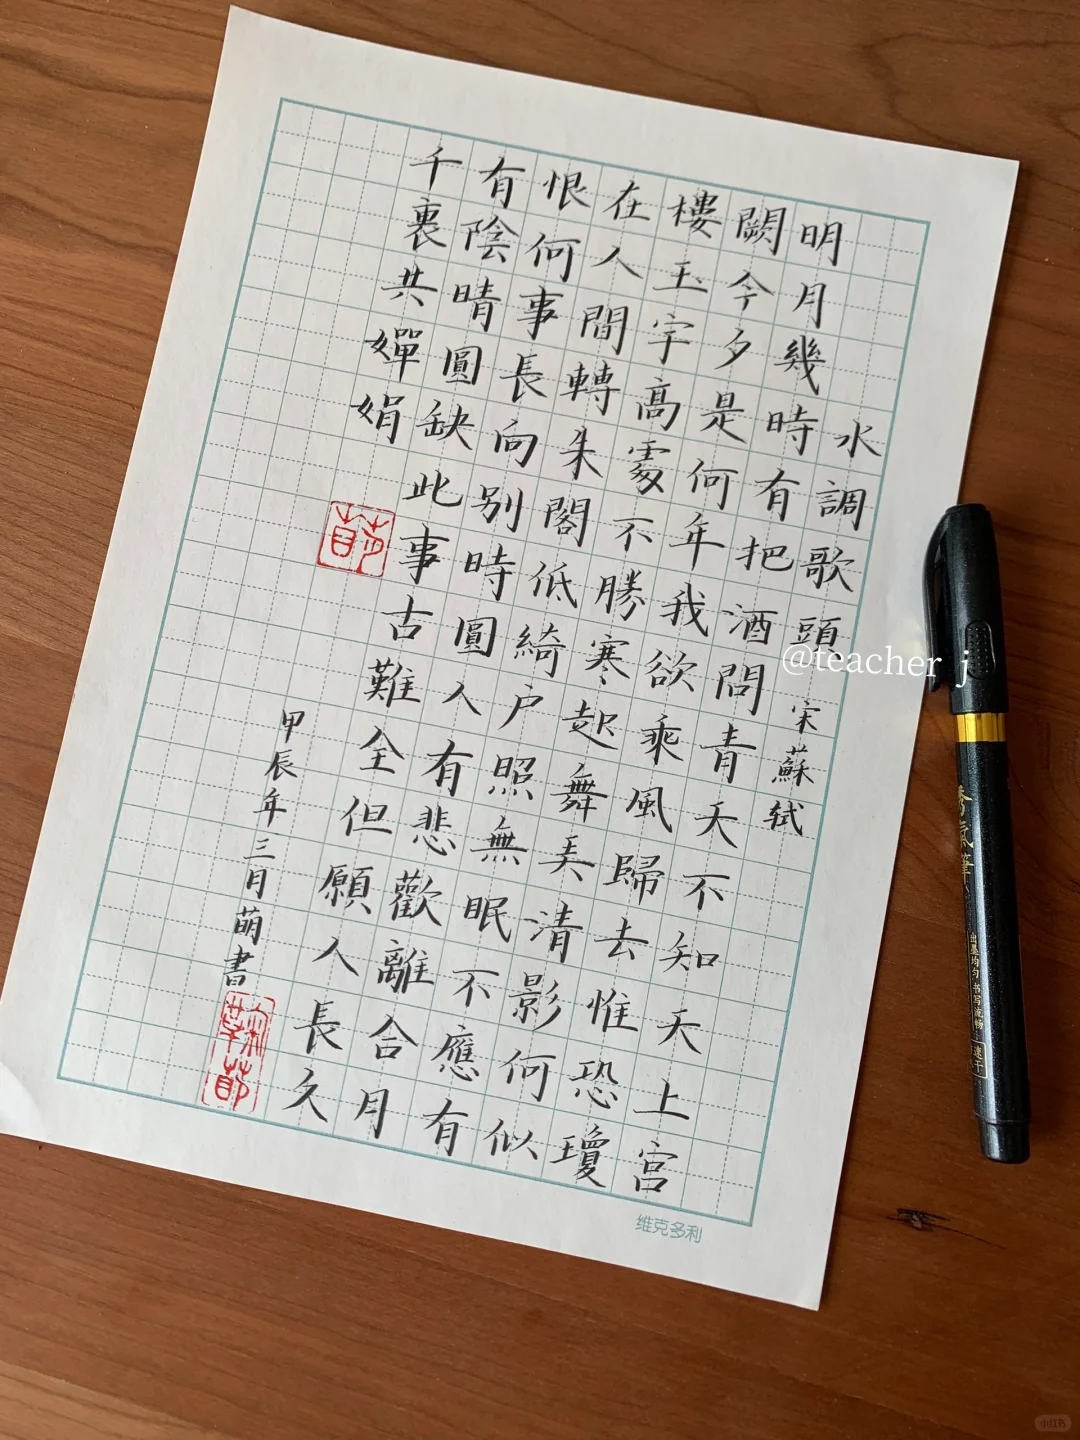 水調歌頭 宋 蘇轼
明月幾時有把酒問青天不知天上宮
闕今夕是何年我欲乘風歸去惟恐瓊
樓玉宇高處不勝寒起舞弄清影何似
在人間轉朱閣低綺户照無眠不應有
恨何事長向别時圓人有悲歡離合月
有陰晴圓缺此事古難全但願人長久
千裏共嬋娟
甲辰年三月萌書
维克多利
@teacher j
秀氣筆
出墨均匀 书写流畅
速干
小红书